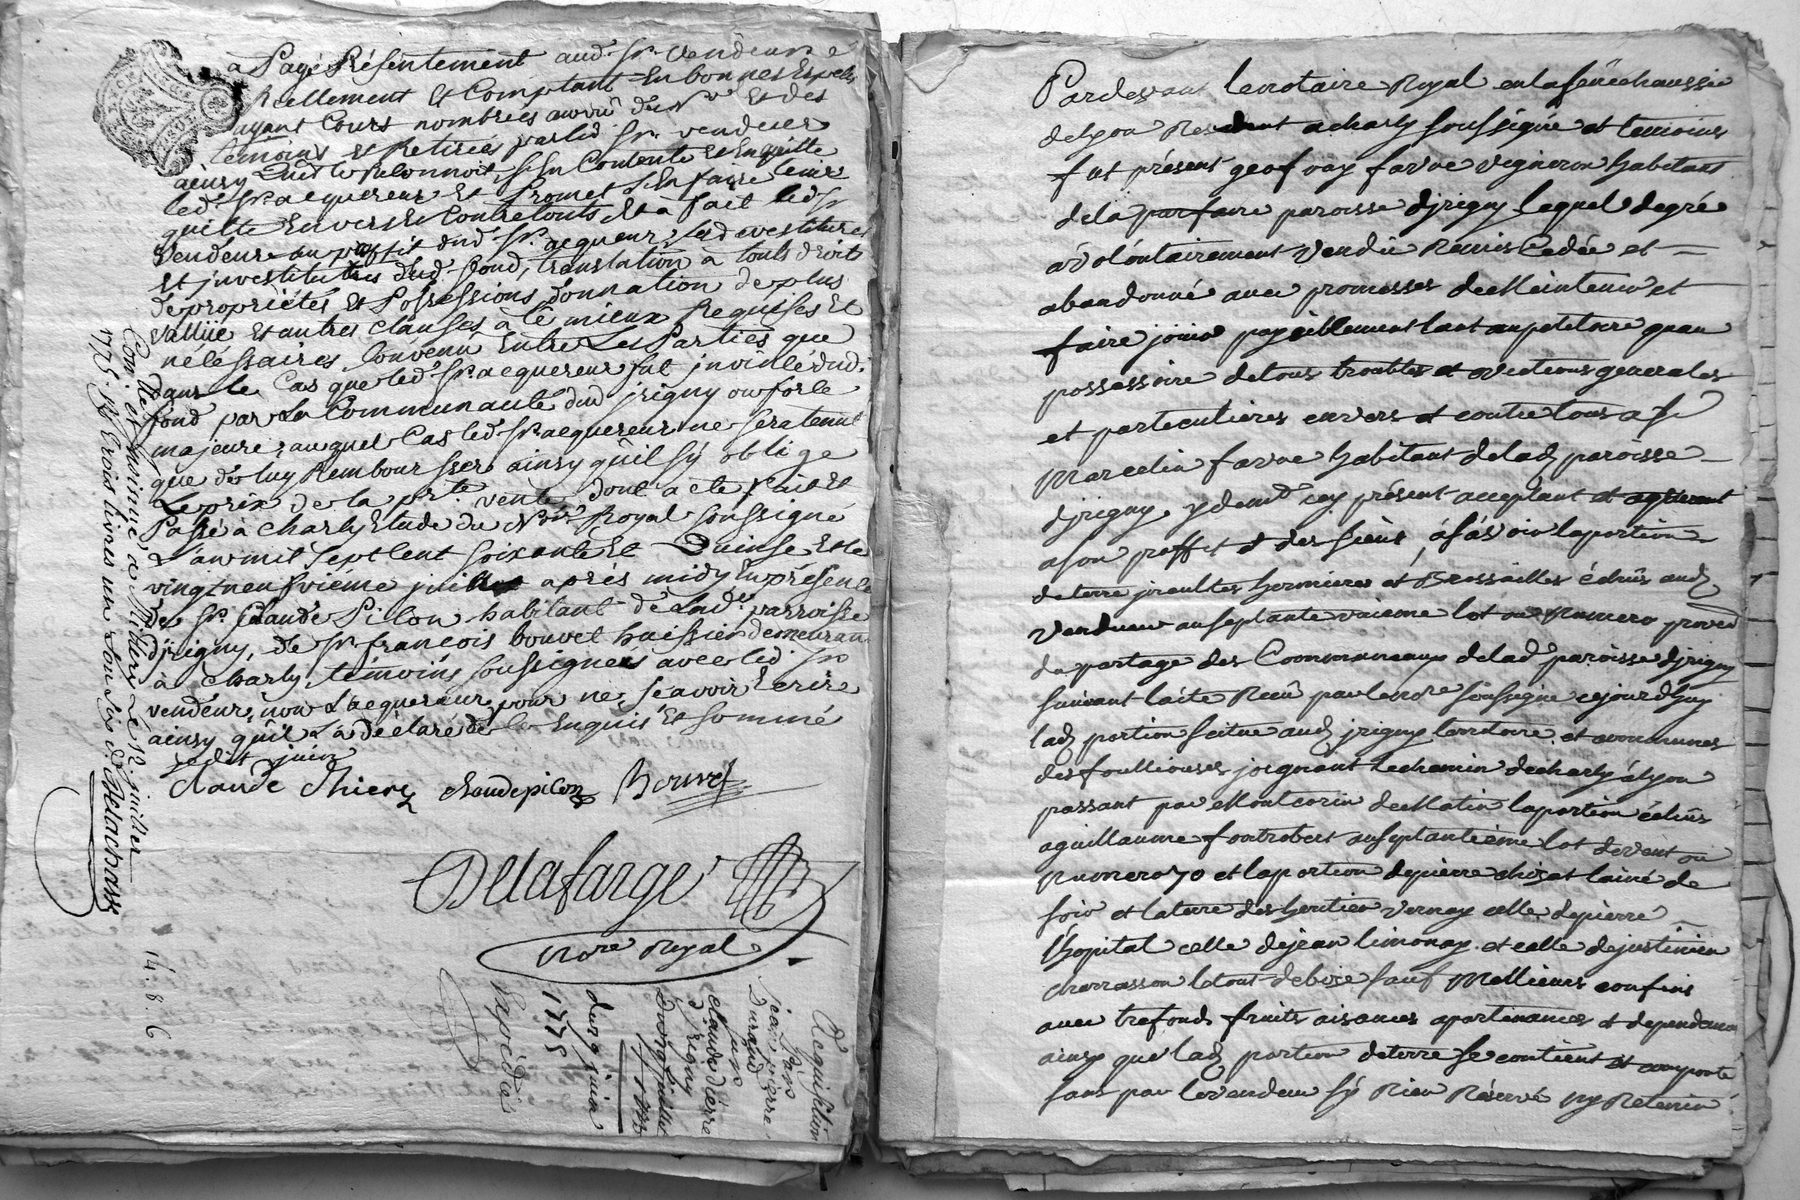 a Payé Réséntement aud. Sr. Vendeur
Réellement Et Comptant En bonnes Espeles
ayant Cours nombrées auvrû du Nre Et des
témoins et Retirées parled Sr. vendeur
ainsy quil le Réconnoit, s'En Contente et En quitte
led Sr. acquereur Et Promet s'En faire tenir
quitte Envers Et Contre touts, Et à fait led Sr
Vendeur au proffit dud Sr. acquereur, les devestitures
Et jnvestitures dud. fond, translation à touts droits
de proprietés Et Possessions donnation de plus
Vallüe Et autres clauses à ce mieux Requises Et
nelessaires, Convenu Entre Les Parties que
dans le Cas que led. Sr. acquereur fut jnvinlé dud.
fond par La Communauté dud jrigny ou force
majeure, auquel Cas led. Sr. acquereur ne sera tenut
que de luy Rembourser ainsy qu'il s'y oblige
Le prix de la pnte vente dont acte, fait Et
Passé à Charly Etude du Nre Royal soussigné
L'an mil sept cent soixante Et Quinse Et le
vingt neufvième juillet après midy En présence
de Sr. Claude Pillon habitant de Lad. parroisse
d'jrigny, de Sr. françois bouvet huissier demeurant
à Charly, témoins soussignés avec led. Sr
vendeur, non L'acquereur pour ne sçavoir Ecrire
ainsy qu'il L'a déclaré de ce Enquis Et sommé
Claude Thiery claudepilon Bouvet
Delafarge
nore Royal
Con.lle et insinué à Millery Le juillet
1775. Rx trois livres un sol six d. Delachasse
14. 8. 6
Acquisition
jean pierre
Durand
claude pierre
d'jrigny
Du 29 juillet
1775
du 29 juin
1775
Expédié
Pardevant le notaire Royal en la sénéchaussée
de Lyon Résident a charly soussigné et temoins
fut présent geofroy favre vigneron habitant
de la parfaire paroisse d'jrigny lequel de gré
a volontairement Vendu Remis Cedée et
abandonné avec promesses de Maintenir et
faire jouir payiblement tant au petitoire quau
possessoire de tous troubles et evictions generales
et particulières envers et contre tous a Sr
Marcelin favre habitant de lad. paroisse
djrigny, y demt. icy présent acceptant et aquerant
a son proffit et des siens, à sávoir la portion
de terre incultes hermieres et Brossailles échûs aud
Vendeur au septante unieme lot ou Numero provenû
de partage des Communeaux de lad. paroisse djrigny
suivant lacte Recû par le nore soussigné cejourdhuy
lad. portion scitue aud. jrigny territoire et communes
des foullouses joignant le chemin de charly à lyon
passant par Montcorin de Matin la portion échûs
a guillaume fontrobert au septantième lot de vent ou
Numero 70 et la portion de pierre chozet lainé de
soir et la terre des heritier Vernay celle de pierre
l'hopital celle de jean limonay et celle de justinien
charrasson le tout de bize sauf Meillieurs confins
avec trefonds fruits aisances apartenances et dependances
ainsy que lad. portion de terre se contient et comporte
sans par le vendeur s'y Rien Réservé ny Retenir